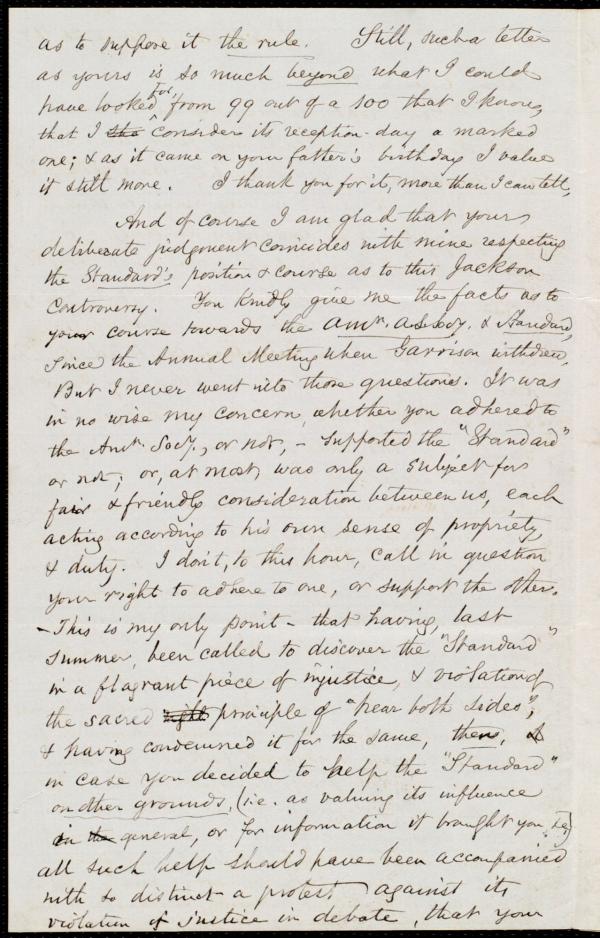 as to suppose it the rule. Still, such a letter
as yours is so much beyond what I could
have looked for, from 99 out of a 100 that I know,
that I consider its reception-day a marked
one; & as it came on your father's birthday I value
it still more. I thank you for it, more than I can tell,
And of course I am glad that your
deliberate judgment coincides with mine respecting
the Standard's position & course as to this Jackson
Controversy. You kindly give me the facts as to
your course towards the Amn. A.S. Socy. & Standard,
since the Annual Meeting when Garrison withdrew.
But I never went into those questions. It was
in no wise my concern, whether you adhered to
the Amn. Socy., or not, - supported the "Standard"
or not; or, at most, was only a subject for
fair & friendly consideration between us, each
acting according to his own sense of propriety
& duty. I don't, to this hour, call in question
your right to adhere to one, or support the other.
- This is my only point - that having, last
summer, been called to discover the "Standard"
in a flagrant piece of injustice, & violation of
the sacred right principle of "hear both sides";
& having condemned it for the same, then,
in case you decided to help the "Standard"
on other grounds, (i.e. as valuing its influence
in the general, or for information it brought you,
all such help should have been accompanied
with so distinct a protest against its
violation of justice in debate, that your